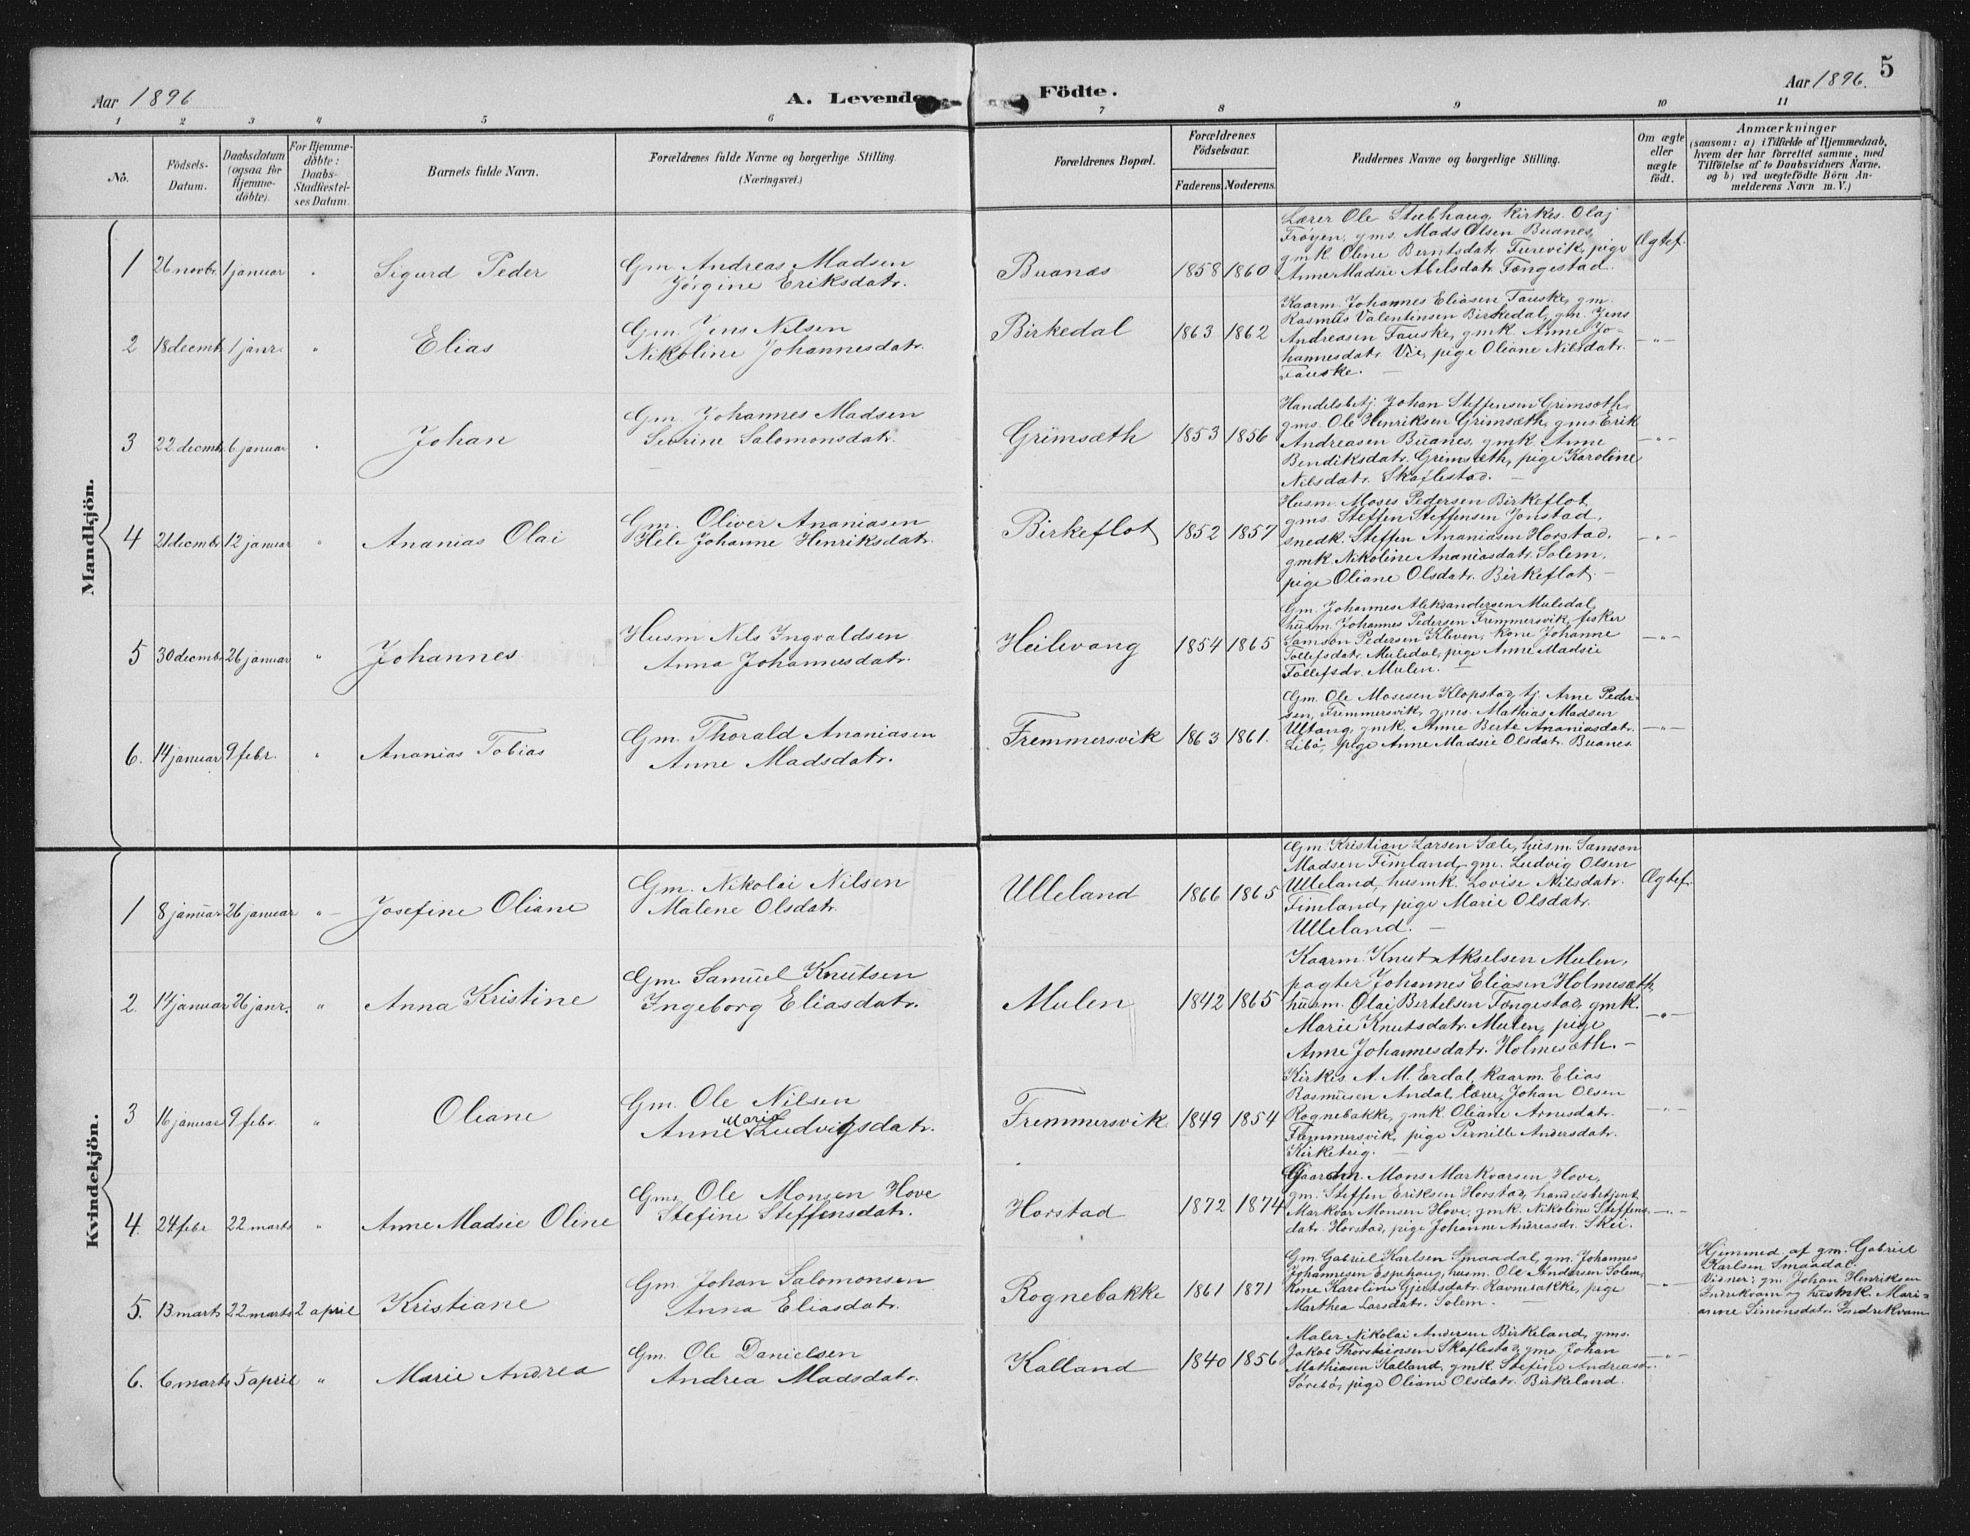 Aar 1896
A. Levende
Födte.
Aar 1896.
5
1 2 3 4 5 6 7 8 9 10 11
No.
Födsels-
Datum.
Daabsdatum
(ogsaa for
Hjemme-
döbte).
For Hjemme-
döbte:
Daabs-
Stadfæstel-
ses Datum.
Barnets fulde Navn.
Forældrenes fulde Navne og borgerlige Stilling.
(Næringsvei.)
Forældrenes Bopæl.
Forældrenes
Födselsaar.
Faderens. Moderens.
Faddernes Navne og borgerlige Stilling.
Om ægte
eller
uægte
födt.
Anmærkninger
(saasom: a) i Tilfælde af Hjemmedaab,
hvem der har forrettet samme, med
Tilföielse af to Daabsvidners Navne,
og b) ved uægtefödte Börn An-
melderens Navn m. V.)
Mandkjön.
1 26 novbr. 1 januar " Sigurd Peder
Gm. Andreas Madsen
Jörgine Eriksdatr.
Buanæs 1858 1860
Lærer Ole Stubhaug, kirkes. Olaj
Frøyen, gms. Mads Olsen Buanes,
gmk. Oline Berntsdatr. Furevik, pige
Anne Madsie Abelsdatr. Fængestad.
Ægtef.
2 18 decmb. 1 janr. " Elias
Gm. Jens Nilsen
Nikoline Johannesdatr.
Birkedal 1863 1862
Kaarm. Johannes Eliasen Tauske, gm.
Rasmus Valentinsen Birkedal, gm. Jens
Andreasen Tauske, gmk. Anne Jo-
hannesdatr. Vie, pige Oliane Nilsdatr.
Tauske. —
—"—
3 22 decmb. 6 januar " Johan
Gm. Johannes Madsen
Severine Salomonsdatr.
Grimsæth 1853 1856
Handelsbetj. Johan Steffensen Grimsæth,
gms. Ole Henriksen Grimsæth, gms. Erik
Andreasen Buanes, gmk. Anne
Bendiksdatr. Grimsæth, pige Karoline
Nilsdatr. Skaflestad. —
—"—
4 21 decmbr. 12 januar " Ananias Olai
Gm. Oliver Ananiasen
Hele Johanne Henriksdatr.
Birkeflot 1852 1857
Husm. Moses Pedersen Birkeflot,
gms. Steffen Steffensen Jonstad,
snedk. Steffen Ananiasen Horstad,
gmk. Nikoline Ananiasdatr. Solem,
pige Oliane Olsdatr. Birkeflot. —
—"—
5 30 decmb. 26 januar " Johannes
Husm. Nils Ingvaldsen
Anna Johannesdatr.
Heilevang 1854 1865
Gm. Johannes Aleksandersen Muledal,
husm. Johannes Pedersen Fremmersvik, fisker
Samson Pedersen Kleven, kone Johanne
Tollefsdatr. Muledal, pige Anne Madsie
Tollefsdr. Mulen. —
—"—
6. 14 januar 9 febr. " Ananias Tobias
Gm. Thorald Ananiasen
Anne Madsdatr.
Fremmersvik 1863 1861.
Gm. Ole Mosesen Klopstad, tj. Arne Peder-
sen, Fremmersvik, gms. Mathias Madsen
Ultang, gmk. Anne Berte Ananiasdatr.
Libö, pige Anne Madsie Olsdatr. Buanes
—"—
Kvindekjön.
1 8 januar 26 januar " Josefine Oliane
Gm. Nikolai Nilsen
Malene Olsdatr.
Ulleland 1866 1865
Gm. Kristian Larsen Sæle, husm. Samson
Madsen Fimland, gm. Ludvig Olsen
Ulleland, husmk. Lovise Nilsdatr.
Fimland, pige Marie Olsdatr.
Ulleland. —
Ægtef.
2. 14 januar 26 janr. " Anna Kristine
Gm. Samuel Knutsen
Ingeborg Eliasdatr.
Mulen 1842 1865
Kaarm. Knut Akselsen Mulen,
pagter Johannes Eliasen Holmesæth,
husm. Olai Bertelsen Fængestad, gmk.
Marie Knutsdatr. Mulen, pige
Anne Johannesdatr. Holmesæth. —
—"—
3 16 januar 9 febr. Oliane
Gm. Ole Nilsen
Anne Marie Ludvigsdatr.
Fremmersvik 1849 1854
Kirkes. A. M. Erdal, kaarm. Elias
Rasmusen Andal, lærer Johan Olsen
Rognebakke, gmk. Oliane Arnesdatr.
Fremmersvik, pige Pernille Andersdatr.
Kirketeig. —
—"—
4. 24 febr 22 marts " Anne Madsie Oline
Gms. Ole Monsen Hove
Stefine Steffensdatr.
Horstad 1872 1874
Gaardm. Mons Markvarsen Hove,
gm. Steffen Eriksen Horstad, handelsbetjent
Markvar Monsen Hove, gmk. Nikoline Steffens-
datr. Horstad, pige Johanne Andreasdr. Skei.
—"—
5. 13 marts 22 marts 2 april Kristiane
Gm. Johan Salomonsen
Anna Eliasdatr.
Rognebakke 1861 1871
Gm. Gabriel Karlsen Smaadal, gm. Johannes
Johannesen Espehaug, husm. Ole Andersen Solem,
Kone Karoline Gjertsdatr. Ravnebakke, pige
Marthea Larsdatr. Solem. —
—"—
Hjemmed. af gm. Gabriel
Karlsen Smaadal.
Vidner: gm. Johan Henriksen
Indrekvam og husmk. Mari-
anne Simonsdatr. Indrekvam.
6. 6 marts 5 april " Marie Andrea
Gm. Ole Danielsen
Andrea Madsdatr.
Kalland 1840 1856
Maler Nikolai Andersen Birkeland, gms.
Jakob Thorsteinsen Skaflestad, gms. Johan
Mathiasen Kalland, gmk. Stefine Andreasdr.
Sørebø, pige Oliane Olsdatr. Birkeland.
—"—